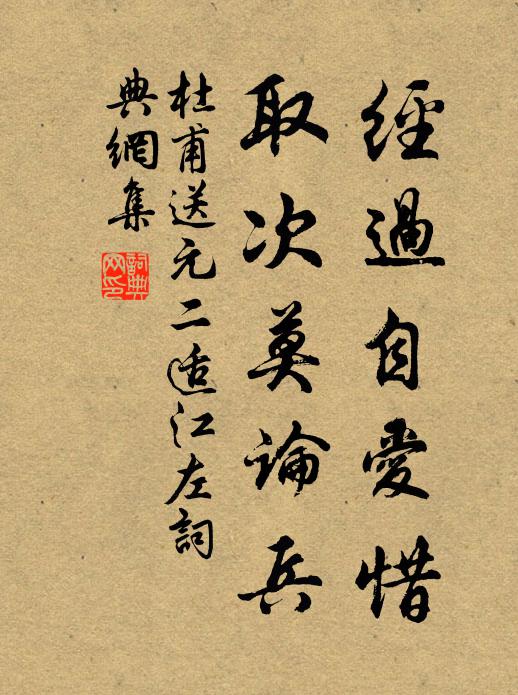 經過自愛惜
取次莫論兵
杜甫送元二适江左詞
典網集
詞典
网印